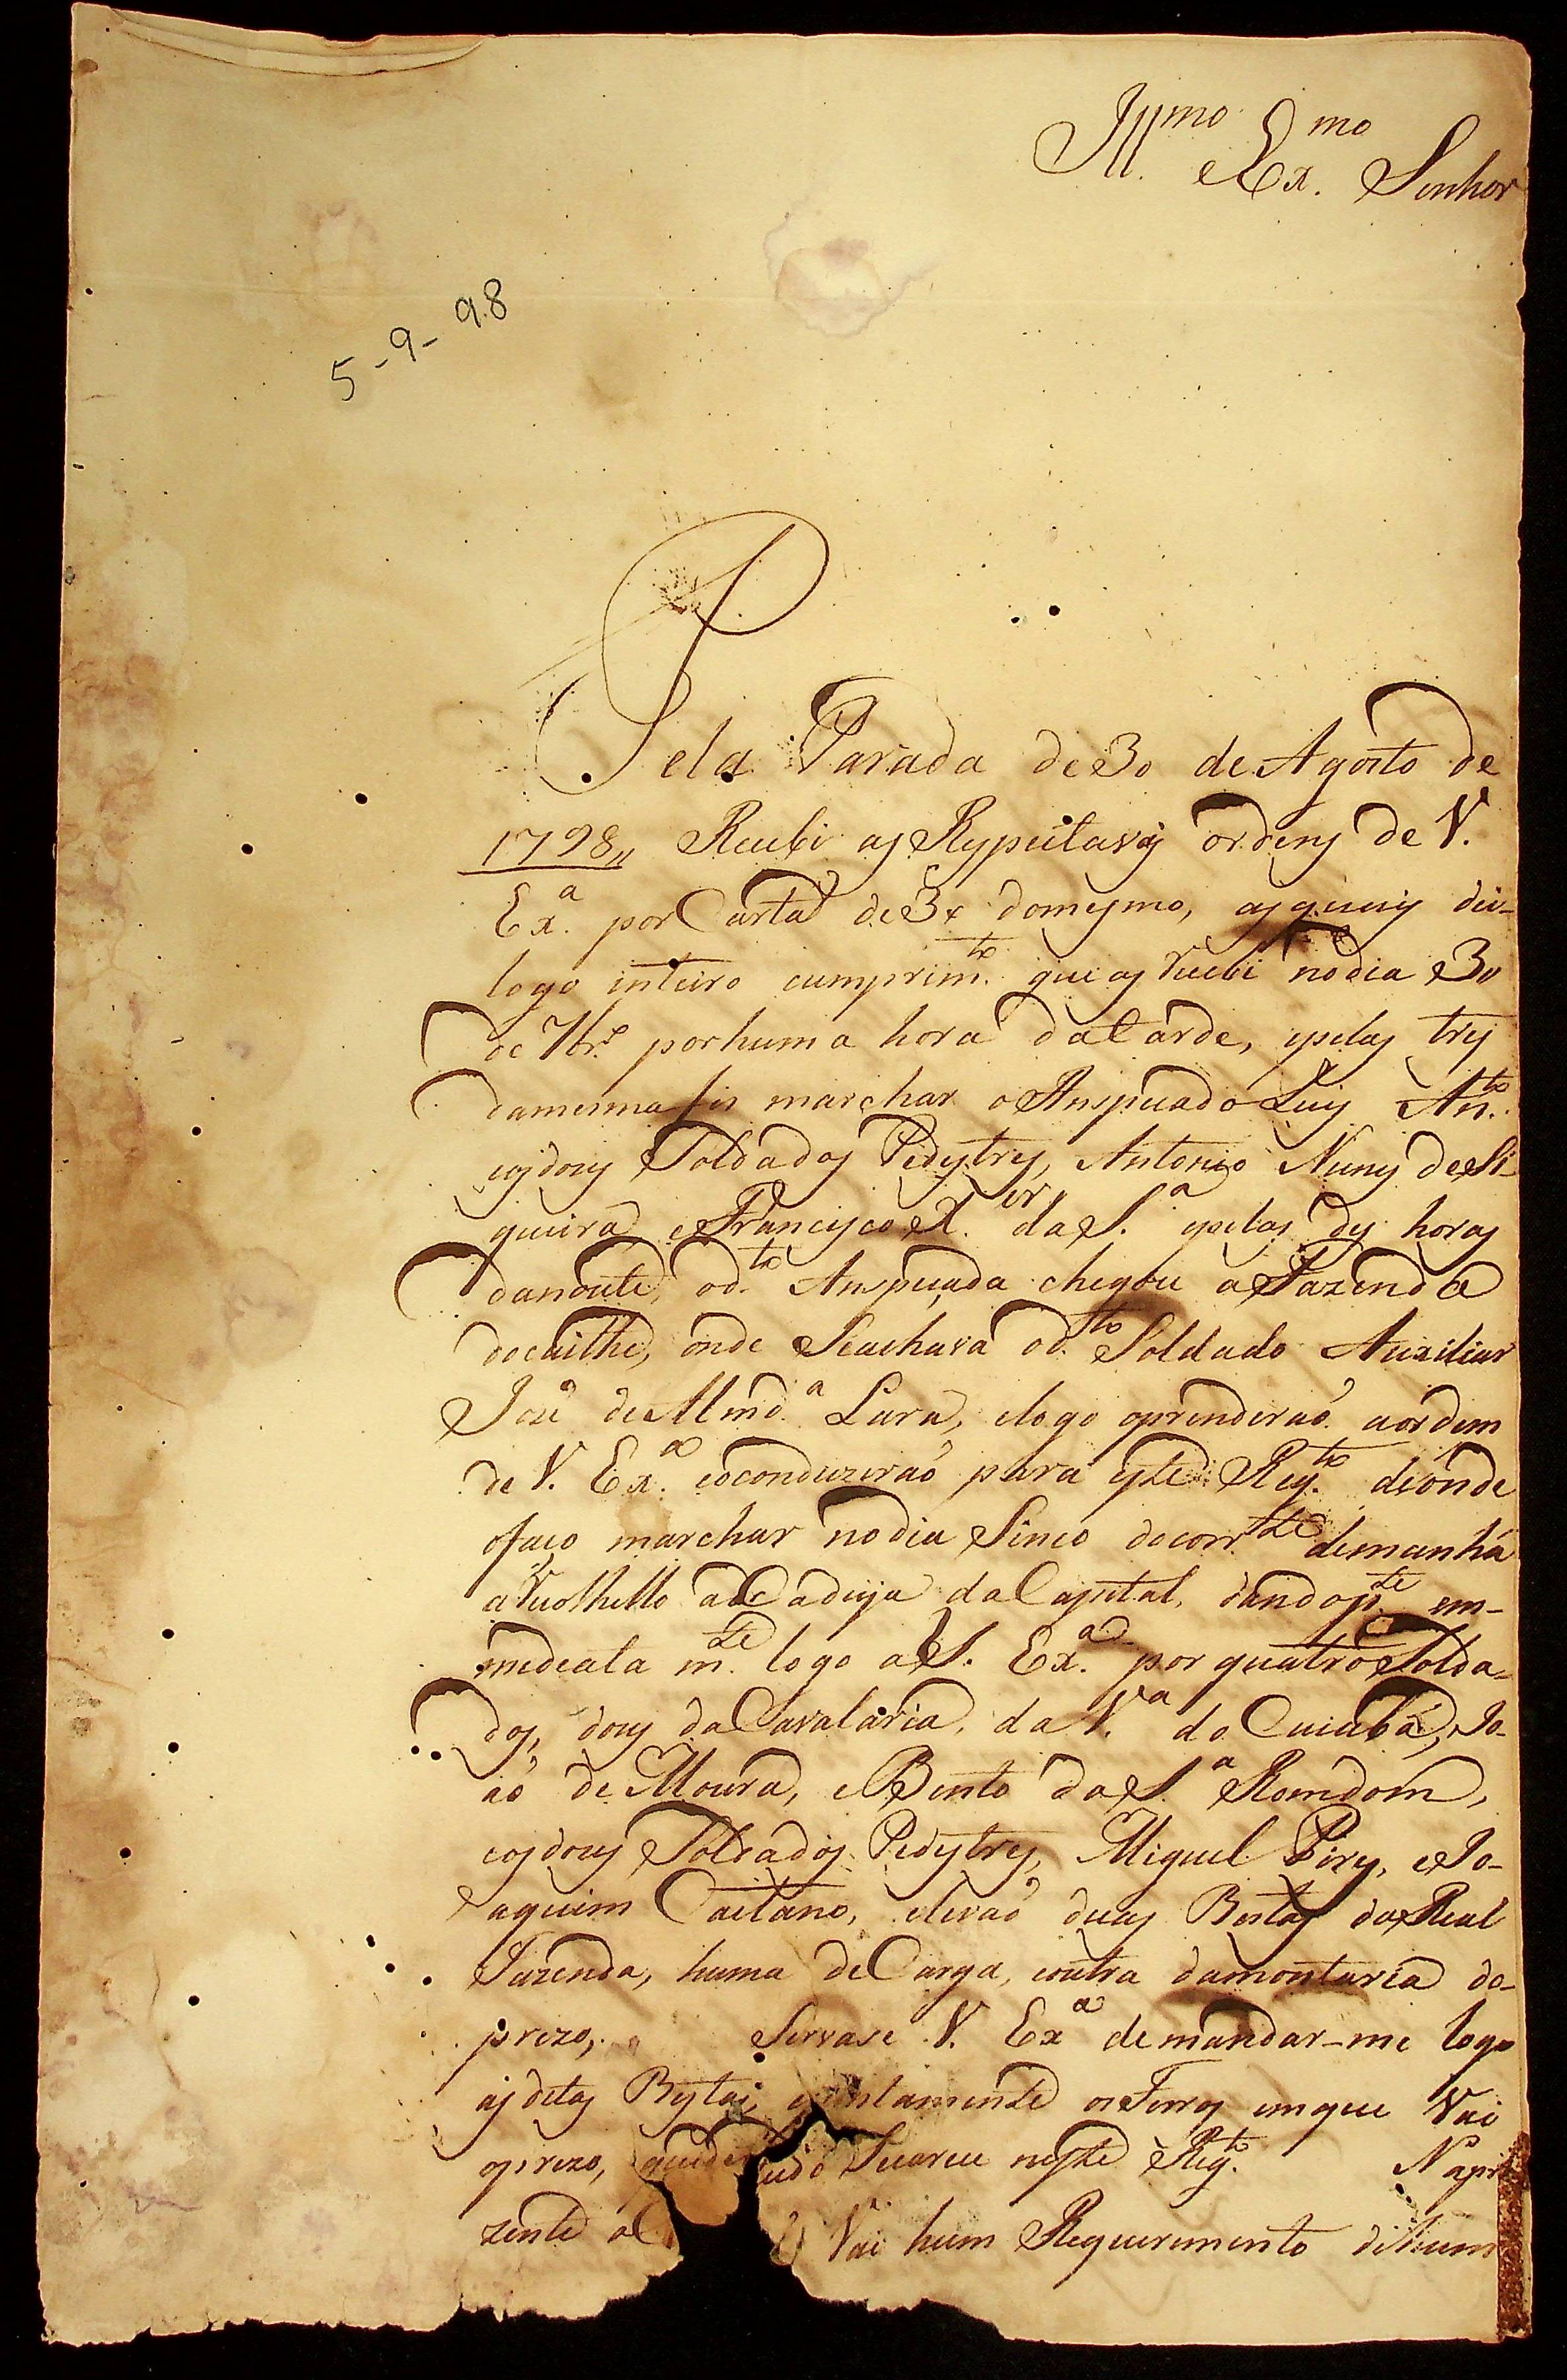 Ill.mo e Ex.mo Senhor
5-9-98
Pela Parada de 30 de Agosto de
1798,, Recebi as Respeitavês ordens de V.
Ex.a por Carta de 3x domesmo, as quais dei-
logo inteiro cumprim.to que as recebi nodia 30
de 7br.o porhuma hora datarde, epelas tres
damesma fis marchar o Anspeçado Luis An.to
eosdous Soldados Pedestres, Antonio Nunes deSi-
queira, eFrancisco X.er daS.a epelas des horas
danoute, od.to Anspeçada chegou aFazenda
 onde Seachava od.to Soldado Auxiliar
Joze de Almd.a Lara, elogo oprenderaõ aordem
de V. Ex.a eoconduzirão para este Reg.to deônde
ofaço marchar nodia Sinco docorr.te demanhã
arecolhello a Cadeya daCapital, dandop.te em-
mediata m.te logo aS. Ex.a por quatro Solda-
dos, dous daCavalaria, da V.a do Cuiabá, Jo-
aõ de Moura, eBento daS.a Romdom,
eosdous Soldados Pedestres, Miguel Pires, eJo-
aquim Caetano, elevaõ duas Bestas daReal
Fazenda, huma deCarga, eoutra damontaria do-
prezo,. Servase V. Ex.a demandar-me logo
as detas Bestas, ejuntamente osFerros emque Vai
oprezo, Secarece neste Reg.to Napre
zente Vai hum Requerimento dehum